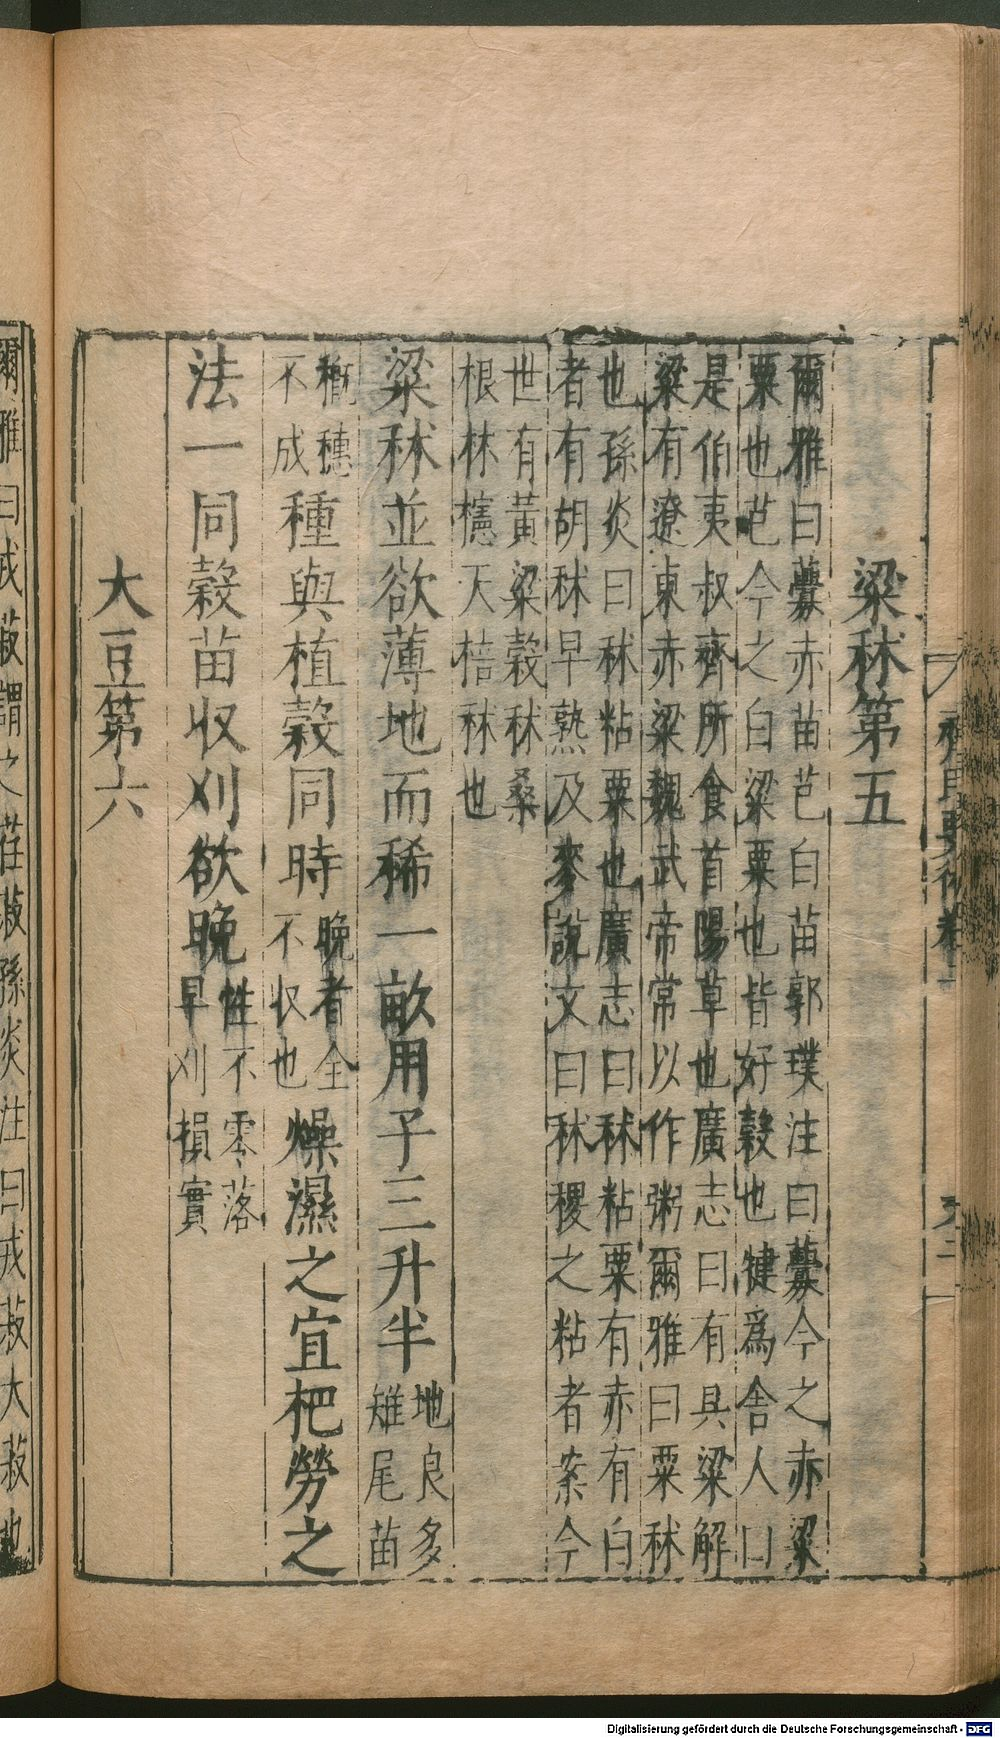 粱秫第五
爾雅曰虋赤苗芑白苗郭璞注曰虋今之赤粱
粟也芑今之白粱粟也皆好穀也犍爲舍人曰
是伯夷叔齊所食首陽草也廣志曰有具粱解
粱有遼東赤粱魏武帝常以作粥爾雅曰粟秫
也孫炎曰秫粘粟也廣志曰秫粘粟有赤有白
者有胡秫早熟及麥說文曰秫稷之粘者案今
世有黃粱穀秫桑
根秫橞天棓秫也
粱秫並欲薄地而稀一畝用子三升半地良多
雉尾苗
穊穗
不成種與植穀同時晚者全
不收也燥濕之宜杷勞之
法一同穀苗收刈欲晚性不零落
早刈損實
大豆第六
爾雅曰戎菽謂之荏菽孫炎注曰戎菽大菽也
Digitalisierung gefördert durch die Deutsche Forschungsgemeinschaft - DFG